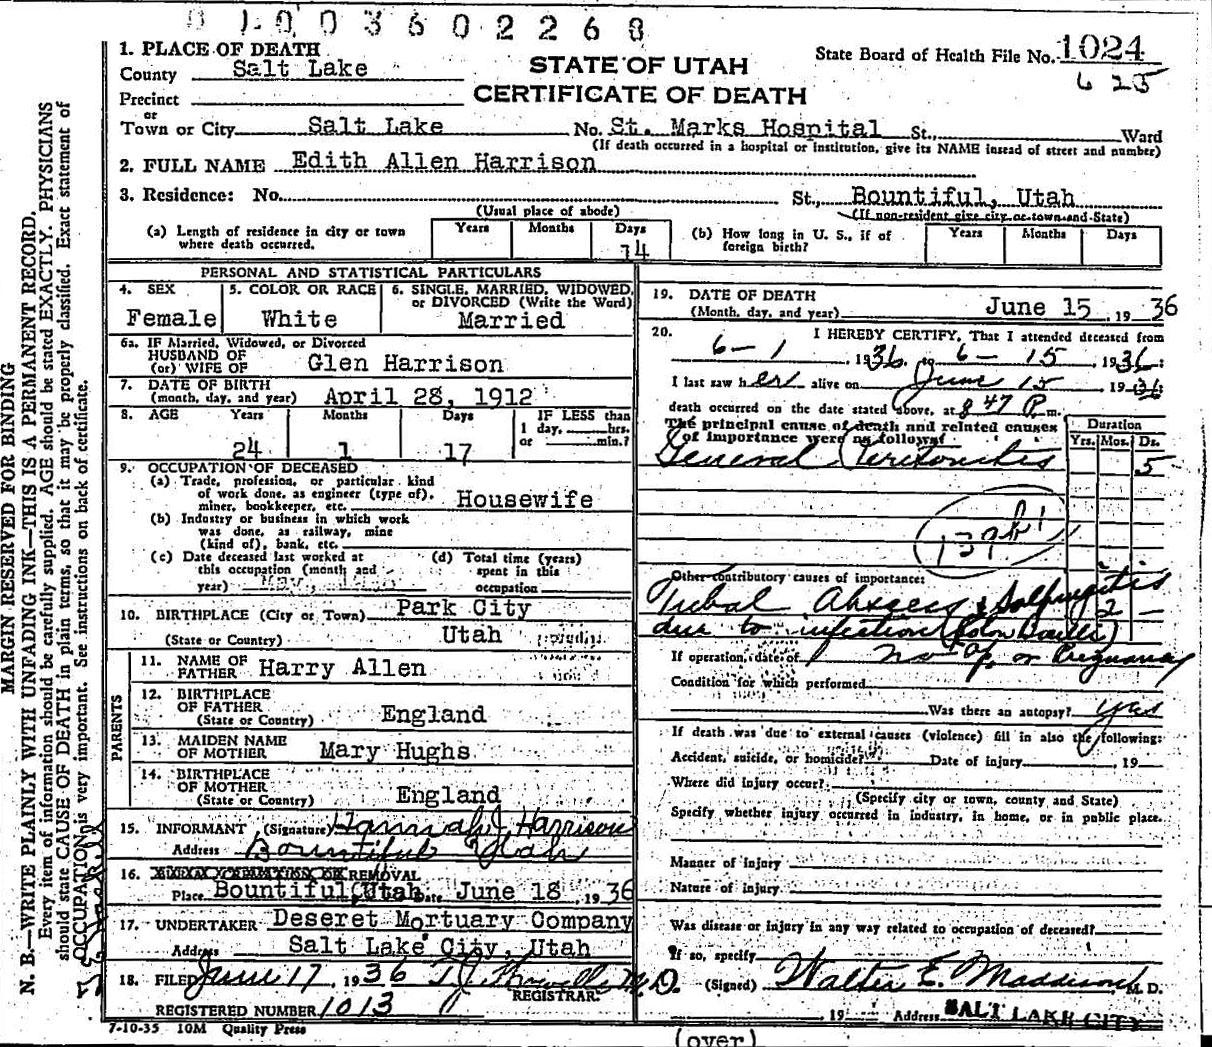 0 1 0 0 3 6 0 2 2 6 8
1. PLACE OF DEATH
County Salt Lake
STATE OF UTAH
State Board of Health File No. 1024
625
Precinct
CERTIFICATE OF DEATH
or
Town or City Salt Lake No. St. Marks Hospital St., Ward
(If death occurred in a hospital or institution, give its NAME insead of street and number)
2. FULL NAME Edith Allen Harrison
3. Residence: No. St., Bountiful, Utah
(Usual place of abode) (If non-resident give city or town and State)
(a) Length of residence in city or town where death occurred. Years Months Days 14
(b) How long in U. S., if of foreign birth? Years Months Days
PERSONAL AND STATISTICAL PARTICULARS
4. SEX Female
5. COLOR OR RACE White
6. SINGLE, MARRIED, WIDOWED, or DIVORCED (Write the Word) Married
6a. IF Married, Widowed, or Divorced
HUSBAND OF
(or) WIFE OF Glen Harrison
7. DATE OF BIRTH
(month, day, and year) April 28, 1912
8. AGE Years Months Days IF LESS than
1 day, hrs.
24 1 17 or min.?
9. OCCUPATION OF DECEASED
(a) Trade, profession, or particular kind
of work done, as engineer (type of),
miner, bookkeeper, etc. Housewife
(b) Industry or business in which work
was done, as railway, mine
(kind of), bank, etc.
(c) Date deceased last worked at
this occupation (month and
year) May,
(d) Total time (years)
spent in this
occupation
10. BIRTHPLACE (City or Town) Park City
(State or Country) Utah
PARENTS
11. NAME OF
FATHER Harry Allen
12. BIRTHPLACE
OF FATHER
(State or Country) England
13. MAIDEN NAME
OF MOTHER Mary Hughs
14. BIRTHPLACE
OF MOTHER
(State or Country) England
15. INFORMANT (Signature) Hannah J Harrison
Address Bountiful Utah
16. REMOVAL
Place Bountiful, Utah Date June 18, 1936
17. UNDERTAKER Deseret Mortuary Company
Address Salt Lake City, Utah
18. FILED June 17, 1936 M.D.
REGISTRAR.
REGISTERED NUMBER 1013
7-10-35 10M Quality Press
19. DATE OF DEATH
(Month, day, and year) June 15, 1936
20. I HEREBY CERTIFY, That I attended deceased from
6-1, 1936, to 6-15, 1936;
I last saw her alive on June 15 1936;
death occurred on the date stated above, at 8 47 P. m.
The principal cause of death and related causes
of importance were as follows:
Duration
Yrs. Mos. Ds.
General Peritonitis 5
Other contributory causes of importance:
Tubal Abscess & Salpingitis
2 —
due to infection (Colon Bacilli)
If operation, date of no op. or Pregnancy
Condition for which performed
Was there an autopsy? yes
If death was due to external causes (violence) fill in also the following:
Accident, suicide, or homicide? Date of injury , 19
Where did injury occur?
(Specify city or town, county and State)
Specify whether injury occurred in industry, in home, or in public place.
Manner of injury
Nature of injury
Was disease or injury in any way related to occupation of deceased?
If so, specify
(Signed) Walter E. Maddison M. D.
19 Address SALT LAKE CITY
(over)
MARGIN RESERVED FOR BINDING
N. B.—WRITE PLAINLY WITH UNFADING INK—THIS IS A PERMANENT RECORD.
Every item of information should be carefully supplied. AGE should be stated EXACTLY. PHYSICIANS
should state CAUSE OF DEATH in plain terms, so that it may be properly classified. Exact statement of
OCCUPATION is very important. See instructions on back of certificate.